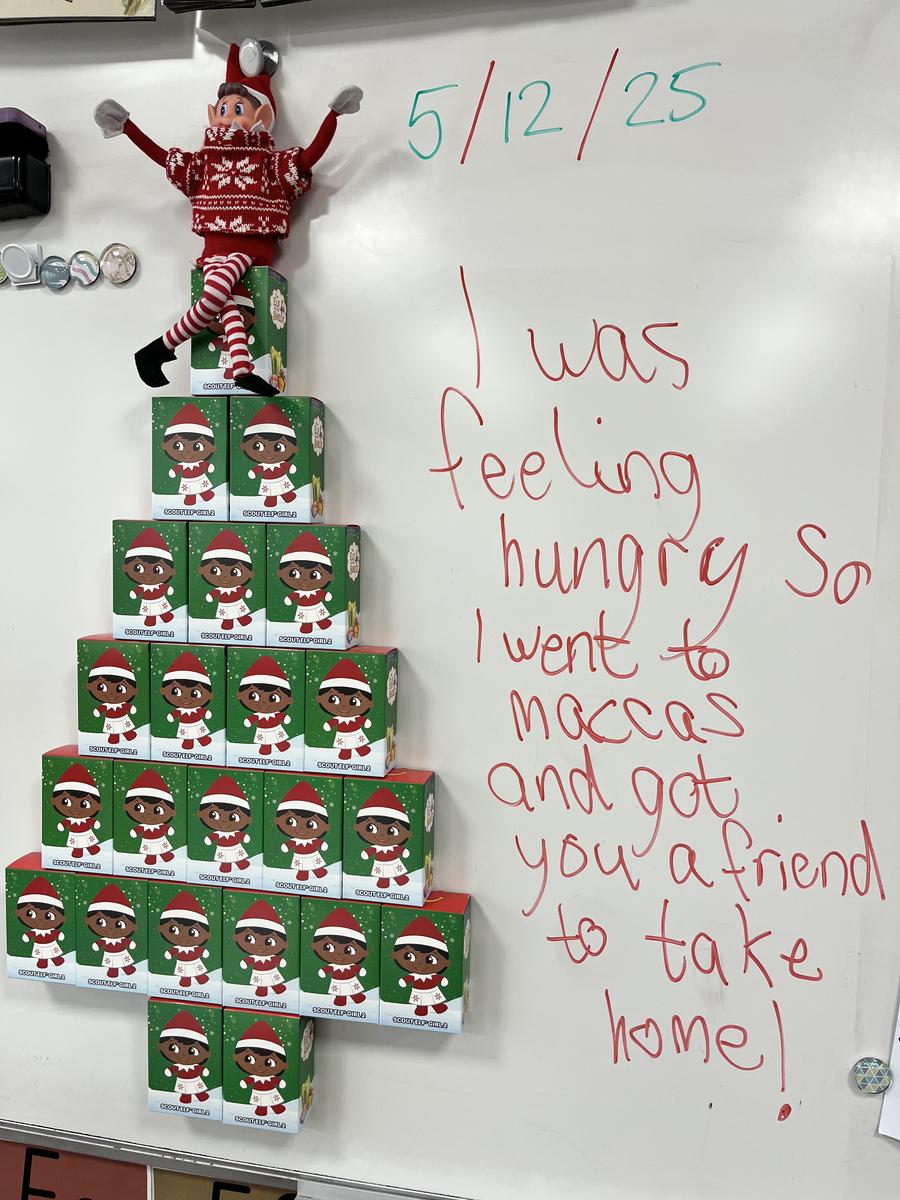 5/12/25
I was
feeling
hungry So
I went to
maccas
and got
you a friend
to take
home!
SCOUT ELF GIRL 2
SCOUT ELF® GIRL 2
SCOUT ELF® GIRL 2
SCOUT ELF® GIRL 2
SCOUT ELF® GIRL 2
SCOUT ELF® GIRL 2
SCOUT ELF® GIRL 2
SCOUT ELF® GIRL 2
SCOUT ELF® GIRL 2
SCOUT ELF® GIRL 2
SCOUT ELF® GIRL 2
SCOUT ELF® GIRL 2
SCOUT ELF® GIRL 2
SCOUT ELF® GIRL 2
SCOUT ELF® GIRL 2
SCOUT ELF® GIRL 2
SCOUT ELF® GIRL 2
SCOUT ELF® GIRL 2
SCOUT ELF® GIRL 2
SCOUT ELF® GIRL 2
SCOUT ELF® GIRL 2
SCOUT ELF® GIRL 2
SCOUT ELF® GIRL 2